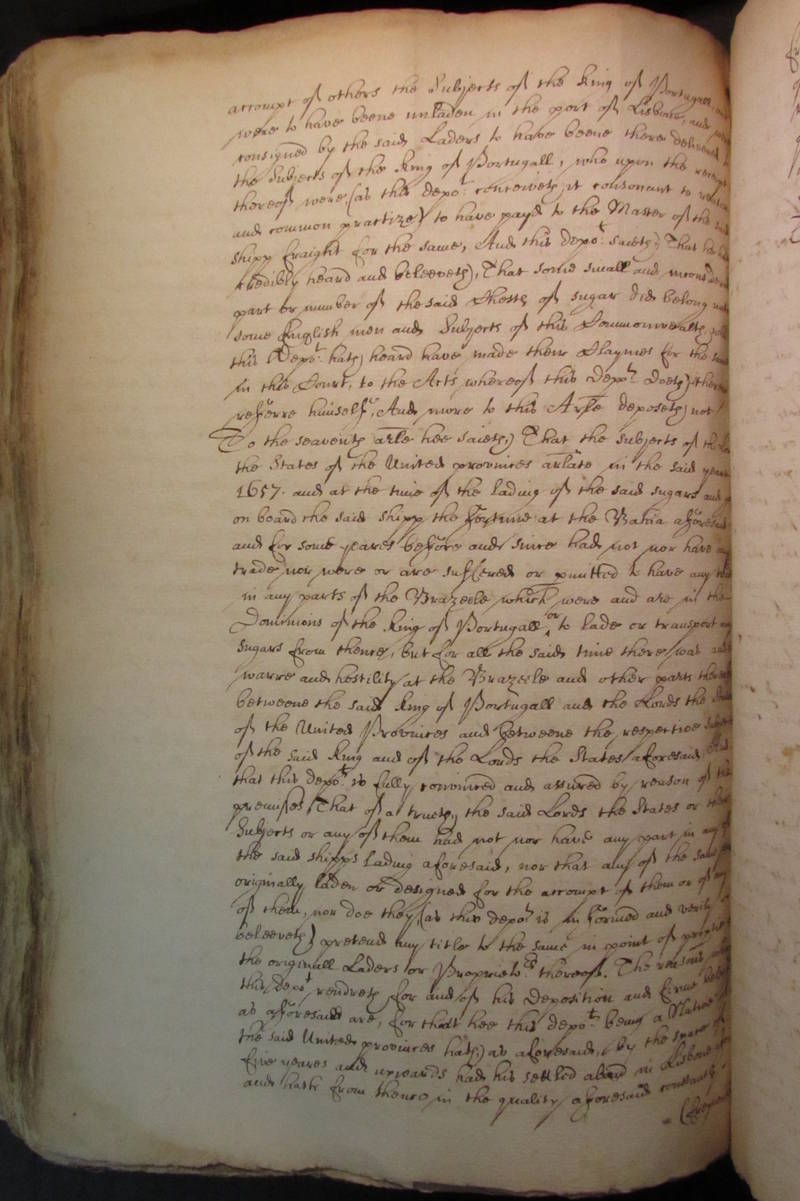 accompt of others the Subjects of the King of Portugall, and
were to have beene unladen in the port of Lisbone, and
consigned by the said Laders to have beene there delivered
the Subjects of the King of Portugall, who upon the receipt
thereof were (as this depot conceiveth it consonant to reason
and common practize) to have payd to the Master of the said
shipp fraight for the same, And this depot saieth, That hee
credibly heard and beleeveth, That some small and
part or number of the said Chests of sugar did belong unto
some English men and Subjects of this Commonwealth,
this Depot hath heard have made their Claymes for the same
in this Court, to the Acts whereof this Depot doeth
referre himselfe, And more to this Arle deposeth not
To the seaventh arle hee saieth, That the subjects of the
the States of the United provinces arlate in the said yeare
1657. and at the time of the lading of the said sugars and
on board the said shipp the Fortune at the Bahia aforesaid
and for some yeares before and since had not nor have any
trade nor were or are suffered or pmitted to have any trade
in any parts of the Brazeele which were and are in the
Dominions of the King of Portugall, or to lade or transport any
sugars from thence, but for all the said time there was
warre and hostility at the Brazeele and other parts thereof
betweene the said King of Portugall and the Lords the States
of the United Provinces and betweene the respective Subjects
of the said King and of the Lords the States aforesaid,
that this depot is fully convinced and assured by reason of the
premises That of a trueth the said Lords the States or their
Subjects or any of them had not nor have any part in any of
the said shipps lading aforesaid, nor that any of the same
originally laden or designed for the accompt of them or of any
of them, nor doe they (as this depot is informed and verily
beleeveth) pretend any title to the same in point of
the originall Laders or Proprietors thereof. The reasons
this depot rendreth for and of his Deposition and firme beleife
as aforesaid are, for that hee this depot being a Native of
the said United provinces hath as aforesaid, by the space of
five yeares and upwards had his setled aboad in Lisbone
and hath from thence in the quality aforesaid constantly